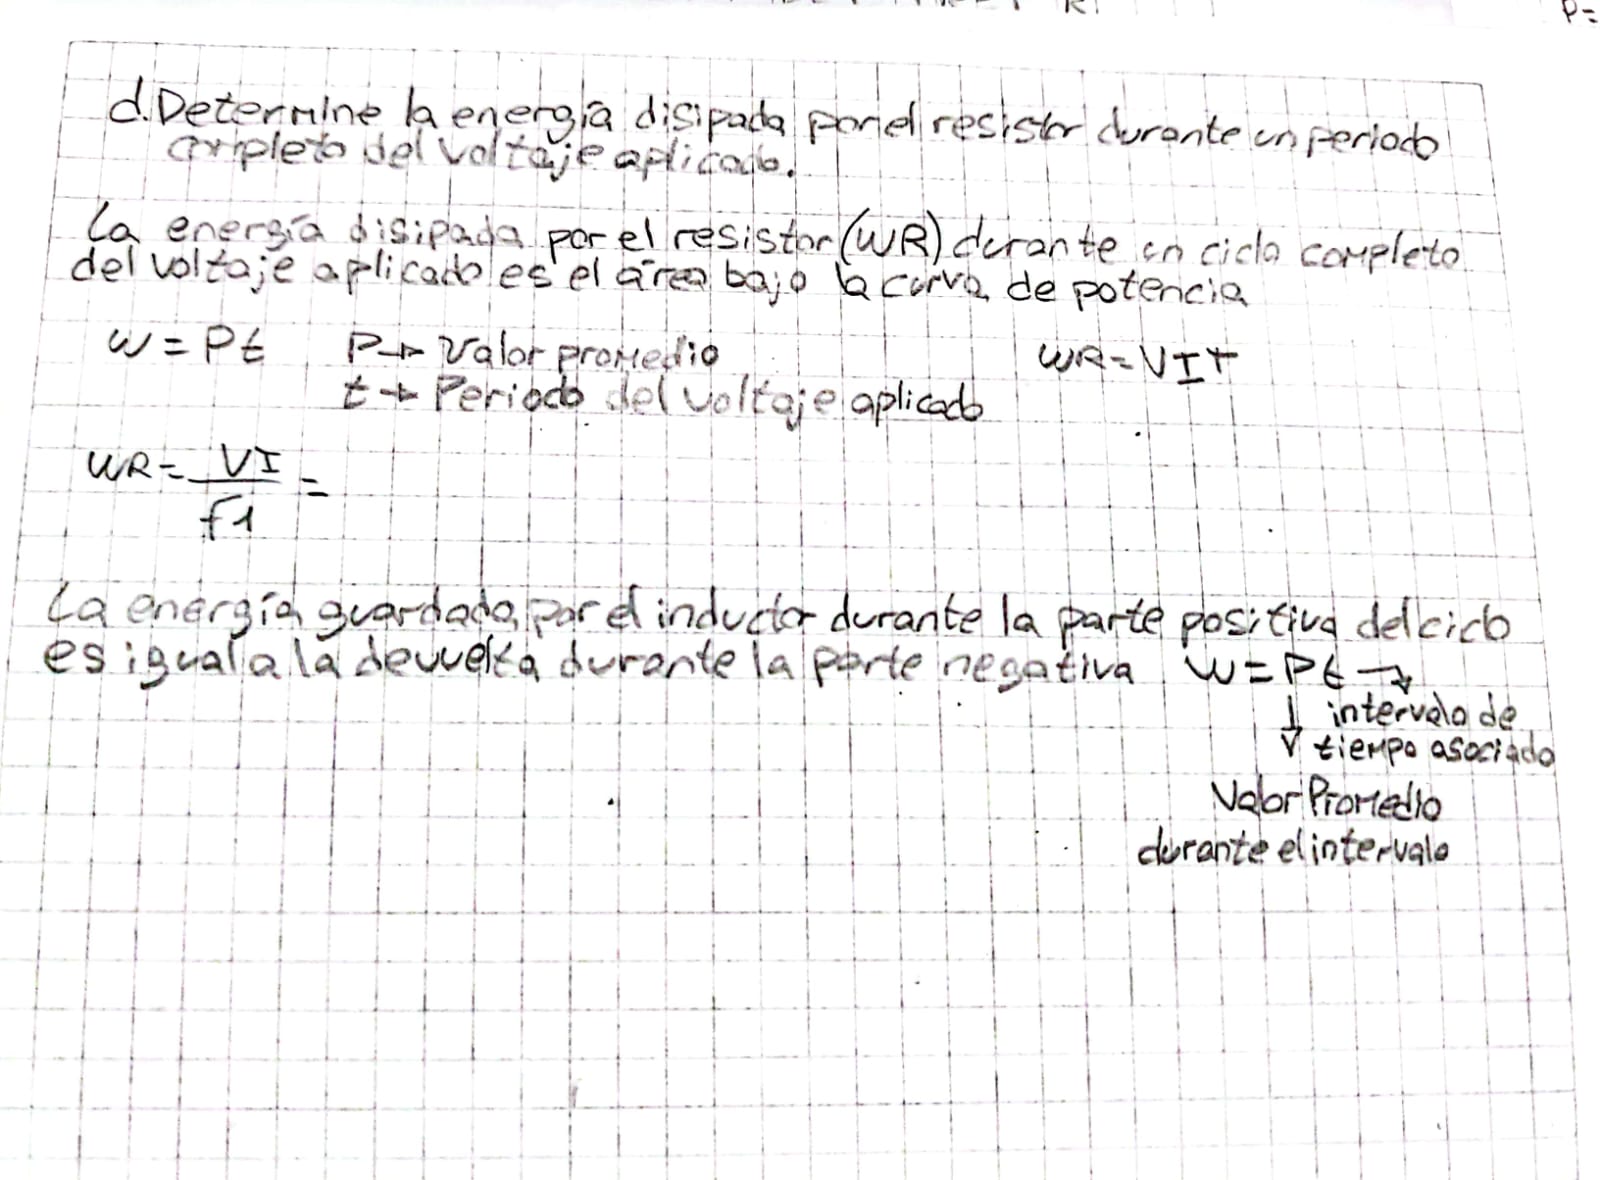 P=
d. Determine la energía disipada por el resistor durante un periodo
completo del voltaje aplicado.
La energía disipada por el resistor (WR) durante un ciclo completo
del voltaje aplicado es el área bajo la curva de potencia
W = Pt P → Valor promedio WR = VIT
t → Periodo del voltaje aplicado
WR = VI / f1 =
La energía guardada por el inductor durante la parte positiva del ciclo
es igual a la devuelta durante la parte negativa W = Pt →
↓ intervalo de
tiempo asociado
Valor Promedio
durante el intervalo